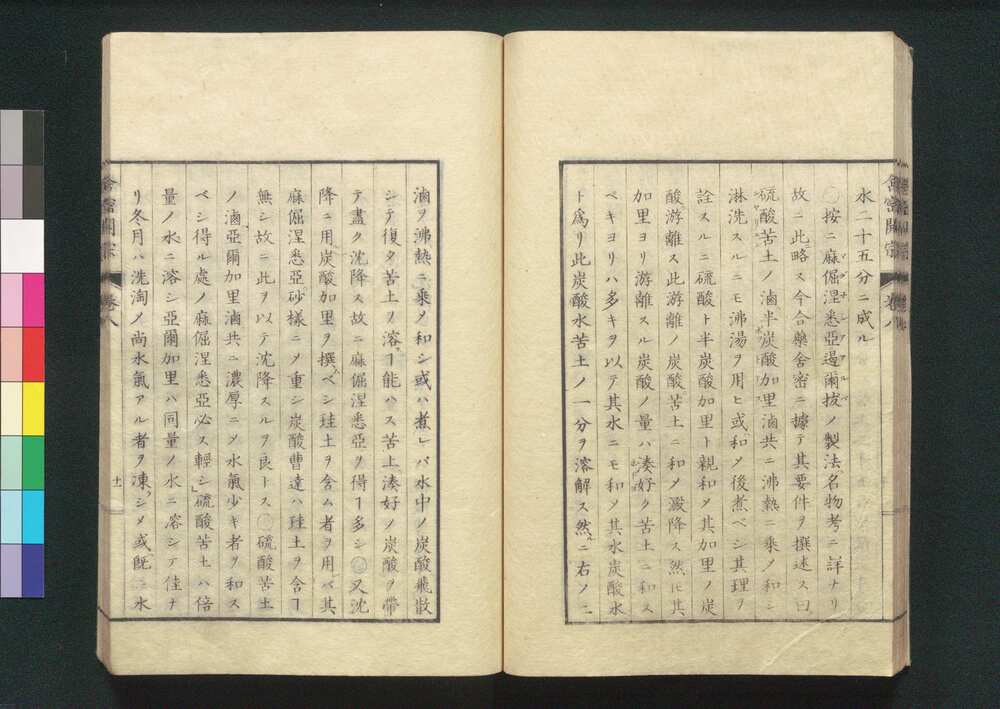 水二十五分ニ成ル
〇按ニ麻倔涅悉亞遏爾抜ノ製法名物考ニ詳ナリ
故ニ此略ス今合藥舍密ニ據テ其要件ヲ撰述ス曰
硫酸苦土ノ滷半炭酸加里滷共ニ沸熱ニ乗ノ和シ
淋洗スルニモ沸湯ヲ用ヒ或和ノ後煮ベシ其理ヲ
詮スルニ硫酸ト半炭酸加里ト親和ノ其加里ノ炭
酸游離ス此游離ノ炭酸苦土ニ和ノ澱降ス然𪜈其
加里ヨリ游離スル炭酸ノ量ハ湊好ク苦土ニ和ス
ベキヨリハ多キヲ以テ其水ニモ和ソ其水炭酸水
ト爲リ此炭酸水苦土ノ一分ヲ溶解ス然ニ右ノ二
滷ヲ沸熱ニ乗ノ和シ或ハ煮レバ水中ノ炭酸飛散
シテ復タ苦土ヲ溶ヿ能ハス苦土湊好ノ炭酸ヲ帶
テ盡ク沈降ス故ニ麻倔涅悉亞ヲ得ヿ多シ〇又沈
降ニ用炭酸加里ヲ撰ベシ珪土ヲ含ム者ヲ用バ其
麻倔涅悉亞砂様ニノ重シ炭酸曹達ハ珪土ヲ含ヿ
無シ故ニ此ヲ以テ沈降スルヲ良トス〇硫酸苦土
ノ滷亞爾加里滷共ニ濃厚ニノ水氣少キ者ヲ和ス
ベシ得ル處ノ麻倔涅悉亞必ス輕シ硫酸苦土ハ倍
量ノ水ニ溶シ亞爾加里ハ同量ノ水ニ溶シテ佳ナ
リ冬月ハ洗淘ノ尚水氣アル者ヲ凍シメ或既ニ氷
舎密開宗
卷八
十一